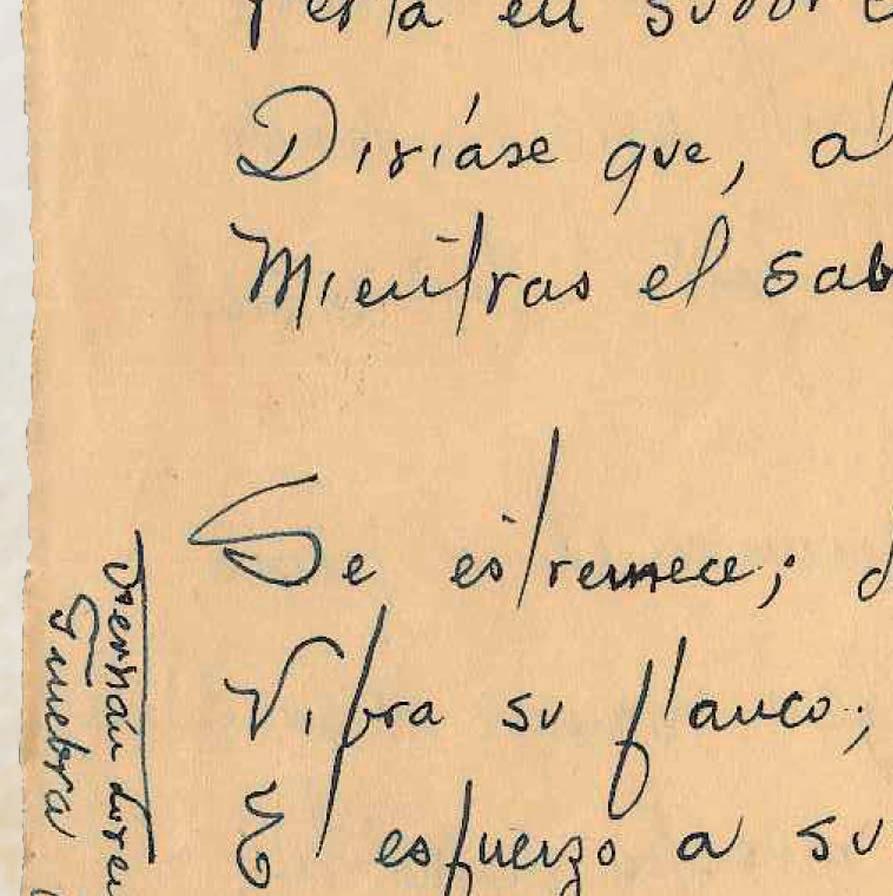 en su
Diríase que, al
Mientras el sab
Se estremece; d
Vibra su flanco;
Y esfuerzo a su
Germán Loren
Ginebra